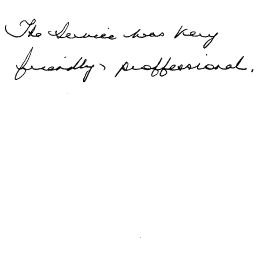 The Service was very
friendly, proffessional.